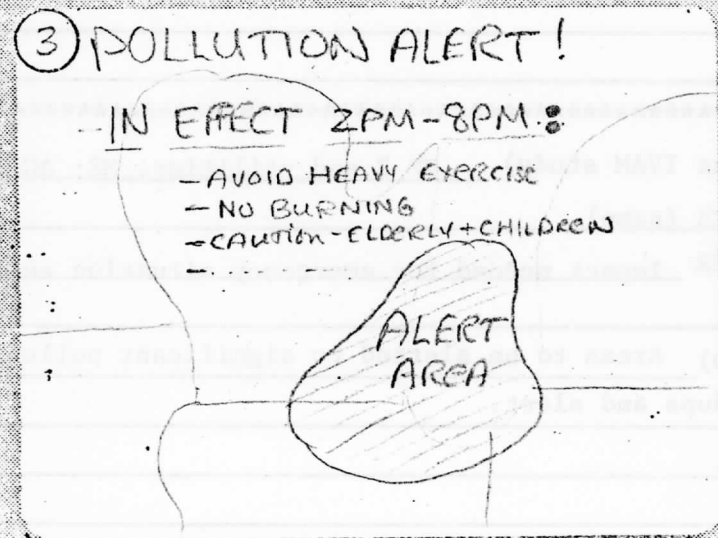 ③ POLLUTION ALERT!
IN EFFECT 2PM-8PM:
- AVOID HEAVY EXERCISE
- NO BURNING
- CAUTION - ELDERLY + CHILDREN
- ...
ALERT
AREA